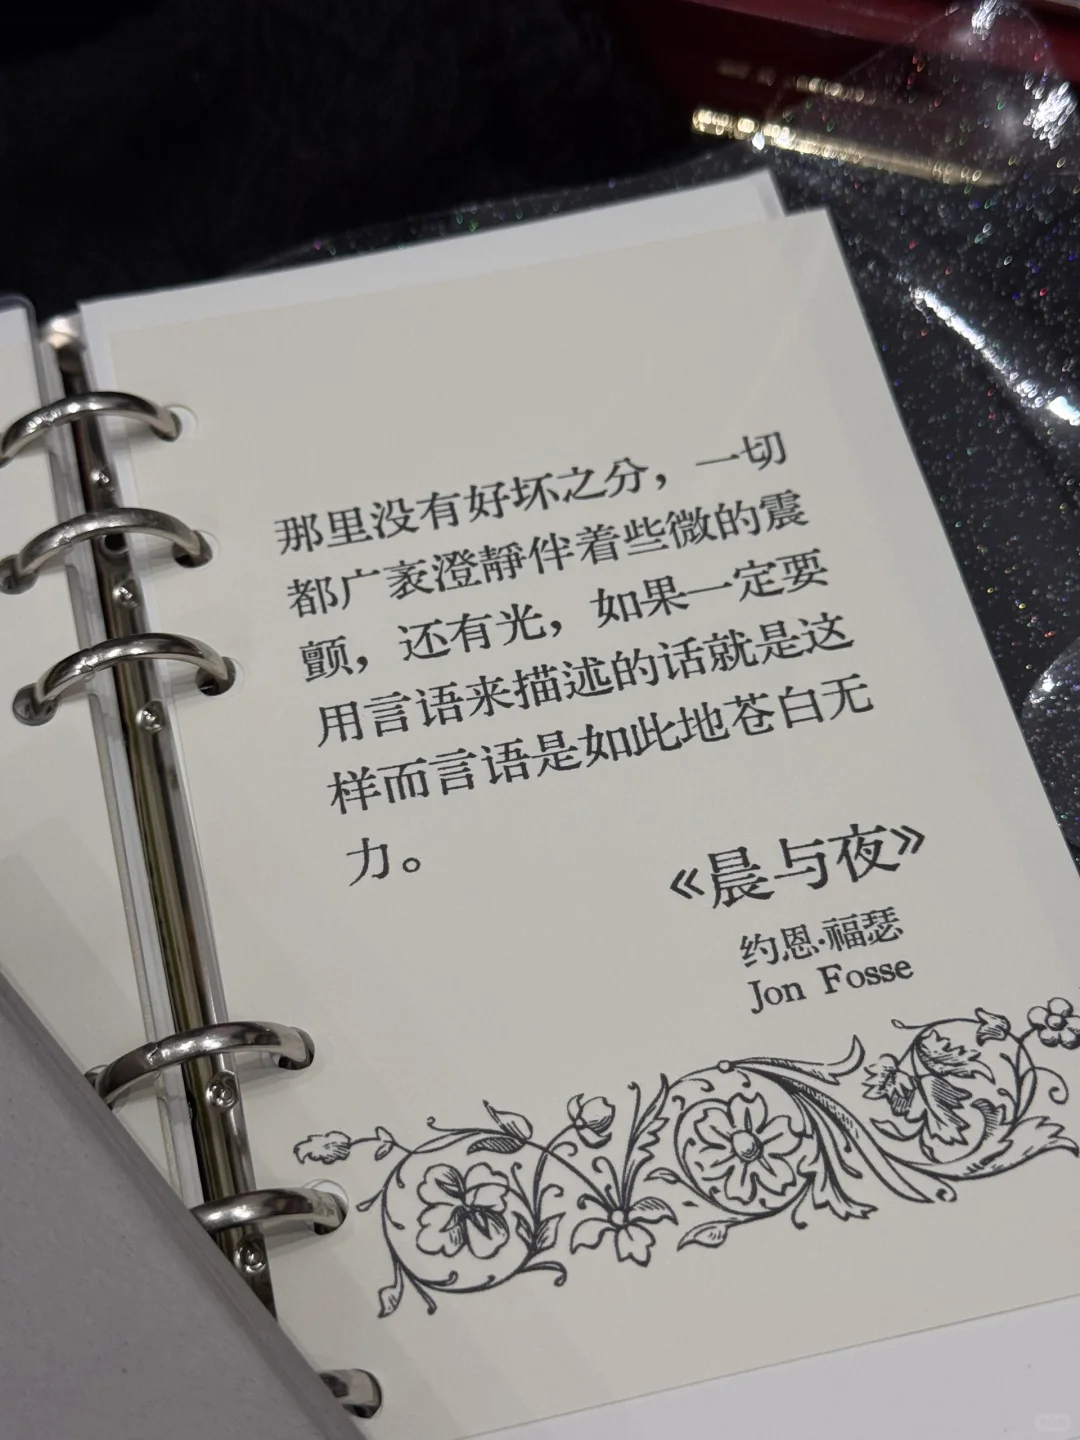 那里没有好坏之分，一切
都广袤澄静伴着些微的震
颤，还有光，如果一定要
用言语来描述的话就是这
样而言语是如此地苍白无
力。
《晨与夜》
约恩·福瑟
Jon Fosse